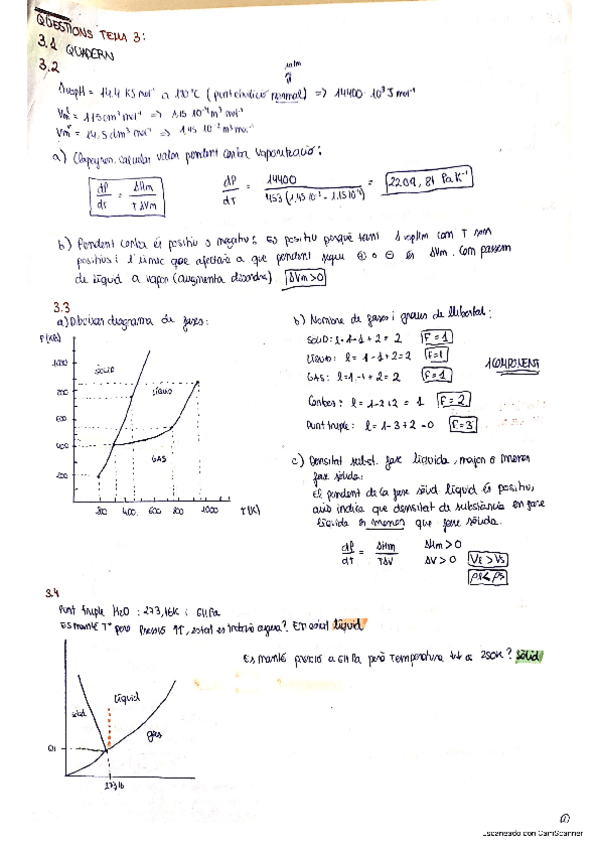 QÜESTIONS TEMA 3:
3.1 QUADERN
3.2
1 atm
ΔvapH = 14.4 KJ mol⁻¹ a 180ºC (punt ebullició normal) => 14400 · 10³ J mol⁻¹
Vm = 115 cm³ mol⁻¹ => 1.15 10⁻⁴ m³ mol⁻¹
Vm = 14.5 dm³ mol⁻¹ => 1.45 10⁻² m³ mol⁻¹
a) Clapeyron, calcular valor pendent corba vaporització:
dP/dT = ΔHm/TΔVm
dP/dT = 14400/453 (1,45 10⁻² - 1.15 10⁻⁴) = 2209,81 Pa K⁻¹
b) Pendent corba és positiu o negatiu: Es positiu perquè tant ΔvapHm com T són
positius i l'únic que afectaria a que pendent sigui ⊕ o ⊖ és ΔVm. Com passem
de líquid a vapor (augmenta desordre) ΔVm>0
3.3
a) Dibuixar diagrama de fases:
P (KPa)
1000
800
600
400
200
SÒLID
LÍQUID
GAS
200 400 600 800 1000 T(K)
b) Nombre de fases i graus de llibertat:
SÒLID: l = 1 - 1 + 2 = 2 F=1
LÍQUID: l = 1 - 1 + 2 = 2 F=1
GAS: l = 1 - 1 + 2 = 2 F=1
1 COMPONENT
Corbes: l = 1 - 2 + 2 = 1 F=2
Punt triple: l = 1 - 3 + 2 = 0 F=3
c) Densitat subst. fase líquida, major o menor
fase sòlida:
El pendent de la fase sòlid líquid és positiu,
això indica que densitat de substància en fase
líquida és menor que fase sòlida.
dP/dT = ΔHm/TΔV
ΔHm>0
ΔV>0 Vl>Vs
ρl<ρs
3.4
Punt triple H₂O: 273,16K i 611Pa
Es manté Tª però Pressió ↑↑, estat es troba aigua? Estat líquid
Es manté pressió a 611Pa però Temperatura a 250K? Sòlid
sòlid
líquid
gas
611
273,16
Escaneado con CamScanner